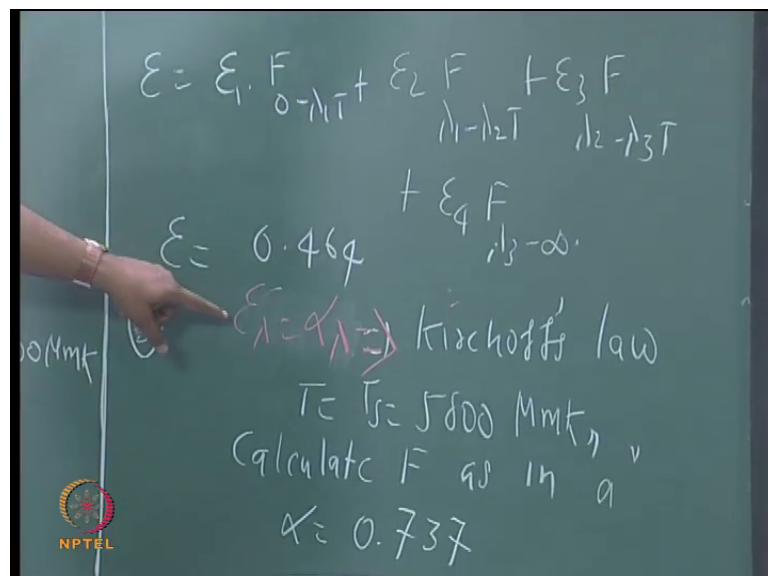 ε = ε₁. F₀₋λ₁T + ε₂ F λ₁-λ₂T + ε₃ F λ₂-λ₃T
+ ε₄ F λ₃-∞.
ε = 0.464
ελ = αλ => Kirchoff's law
00 μmk
T = Ts = 5800 μmk,,
Calculate F as in a
α = 0.737
NPTEL